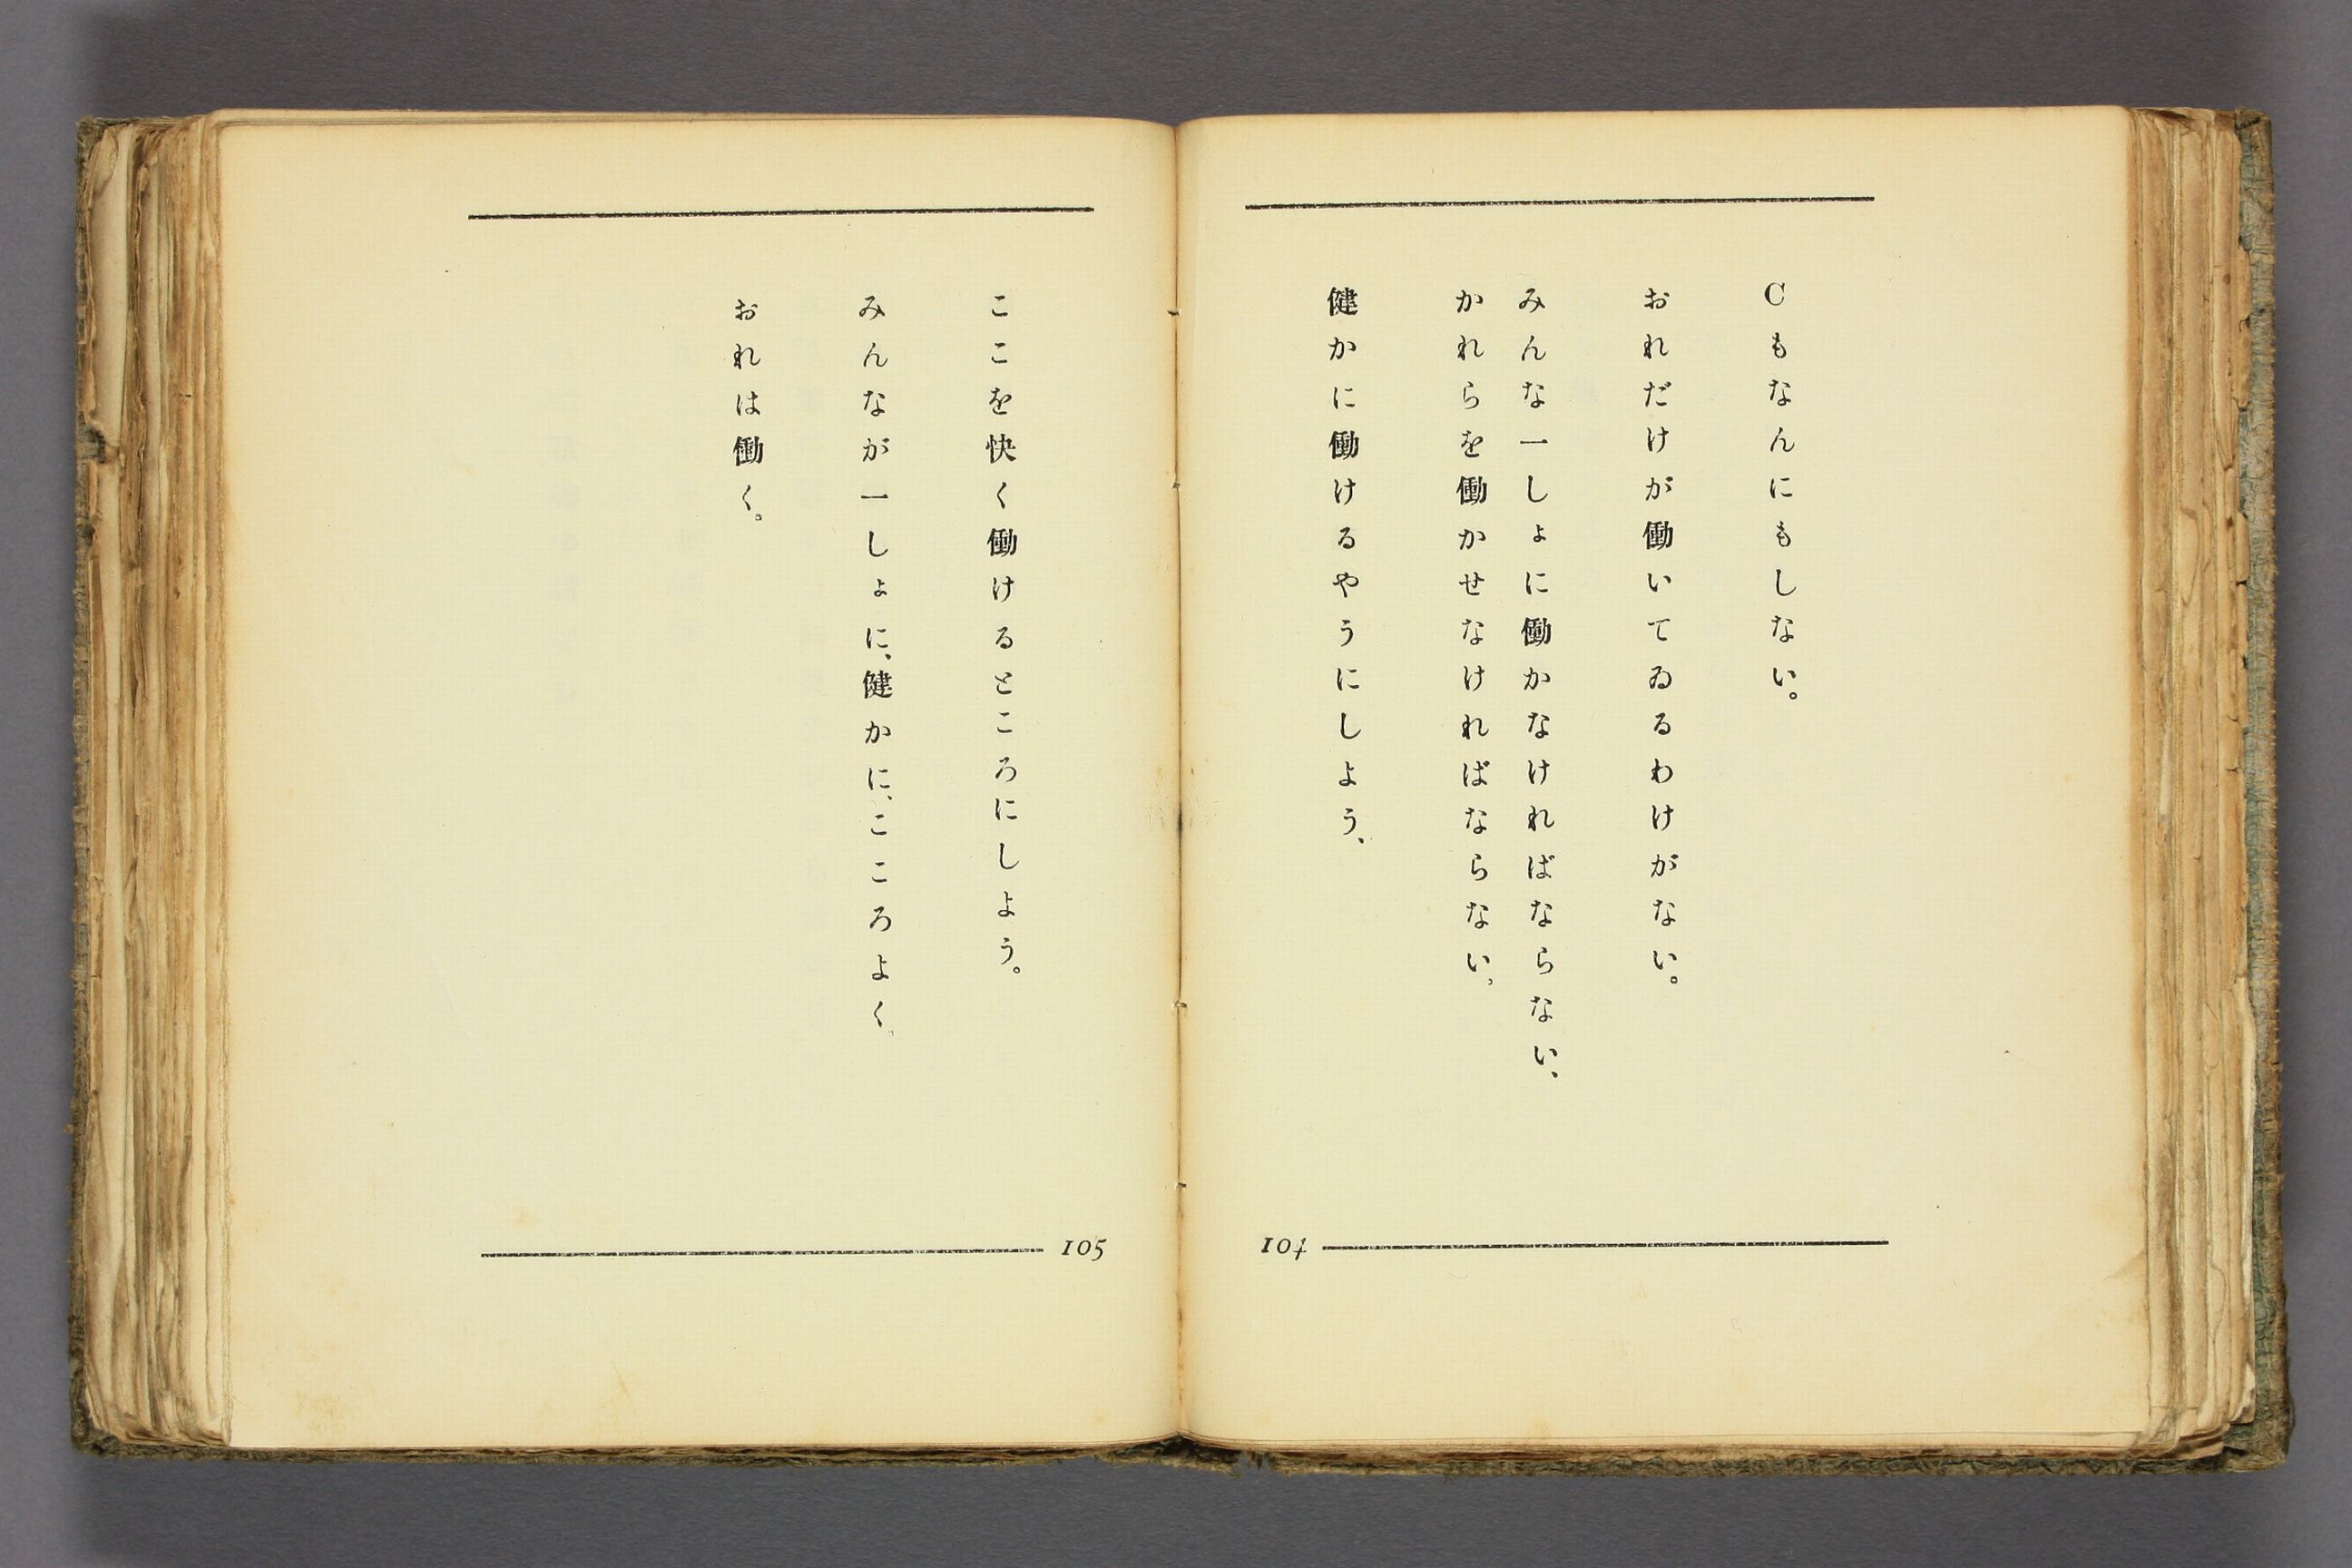 Cもなんにもしない。
おれだけが働いてゐるわけがない。
みんな一しょに働かなければならない、
かれらを働かせなければならない、
健かに働けるやうにしよう、
104
ここを快く働けるところにしよう。
みんなが一しょに、健かに、こころよく、
おれは働く。
105